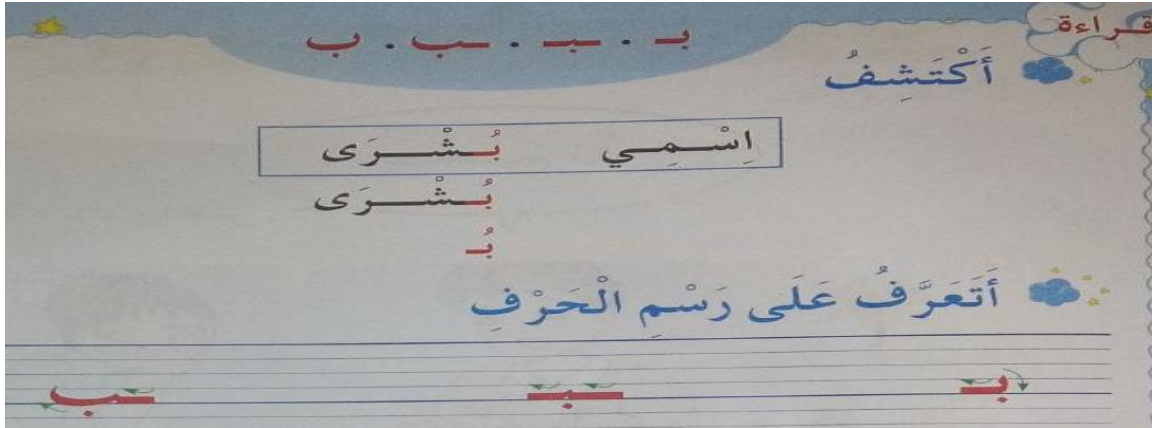 قراءة
بـ . ـبـ . ـب . ب
أَكْتَشِفُ
اِسْمِي بُشْرَى
بُشْرَى
بُـ
أَتَعَرَّفُ عَلَى رَسْمِ الْحَرْفِ
بـ ـبـ ـب